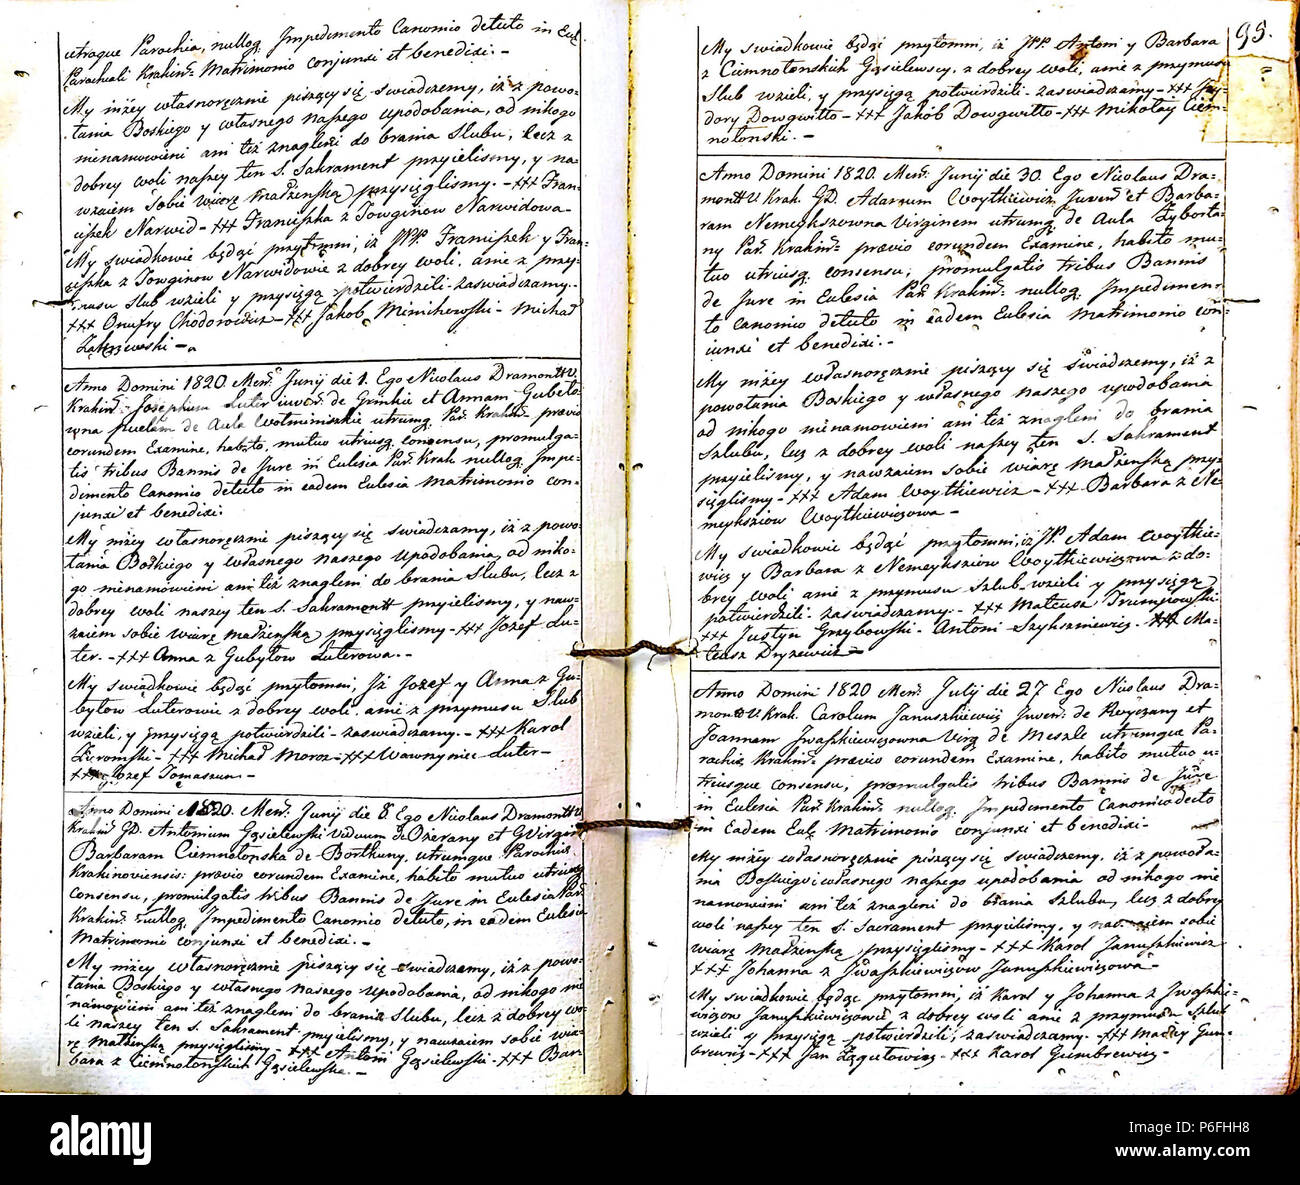 utraque Parochia, nulloq. Impedimento Canonico detecto in Eul.
Parochiali Krakin. Matrimonio conjunxi et benedixi. -
My niżey własnoręcznie piszący się swiadczemy, iż z powo-
łania Boskiego y własnego naszego upodobania, od nikogo
nienamowieni ani też znagleni do brania Slubu, lecz z
dobrey woli naszey ten S. Sakrament przyielismy, y na-
wzaiem Sobie wiarę małżenską przysięglismy. - +++ Fran-
ciszek Narwid - +++ Franciszka z Towginow Narwidowa -
My swiadkowie będąc przytomni, iż JPP. Franciszek y Fran-
ciszka z Towginow Narwidowie z dobrey woli, a nie z przy-
musu slub wzieli y przysięgą potwierdzili - zaswiadczamy. -
+++ Onufry Chodorowicz - +++ Jakob Minichowski - Michał
Zakrzewski -
Anno Domini 1820. Men. Junij die 1. Ego Nicolaus Dramontt V.
Krakin. Josephum Luter juven. de Grinkie et Annam Gubeło-
wna puellam de Aula Wotminiszkie utrumq. Par. Krakin. - prævio
eorundem Examine, habito, mutuo utriusq. consensu, promulga-
tis tribus Bannis de Jure in Eulesia Par. Krak. nulloq. Impe-
dimento Canonico detecto in eadem Eulesia Matrimonio con-
junxi et benedixi.
My niżey własnoręcznie piszący się swiadczamy, iż z powo-
łania Boskiego y własnego naszego upodobania, od niko-
go nienamowieni ani też znagleni do brania Slubu, lecz z
dobrey woli naszey ten S. Sakramentt przyielismy, y naw-
zaiem sobie wiarę małżenską przysięglismy - +++ Jozef Lu-
ter. - +++ Anna z Gubyłow Luterowa. -
My swiadkowie będąc przytomni, Iż Jozef y Anna z Gu-
byłow Luterowie z dobrey woli, a nie z przymusu Slub
wzieli, y przysięgą potwierdzili - zaswiadczamy. - +++ Karol
Żeromski - +++ Michał Moroz - +++ Wawrzyniec Luter -
+++ Jozef Tomaszun -
Anno Domini 1820. Men. Junij die 8. Ego Nicolaus Dramontt V.
Krakin. GD. Antonium Gąsielewski Viduum de Ożerany et G. Virgin.
Barbaram Ciemnołonska de Bortkuny, utrumque Parochiæ
Krakinoviensis: prævio eorundem Examine, habito mutuo utriusq.
Consensu, promulgatis tribus Bannis de Jure in Eulesia Par.
Krakin. nulloq. Impedimento Canonico detecto, in eadem Eulesia
Matrimonio conjunxi et benedixi. -
My niżey własnoręcznie piszący się swiadczamy, iż z powo-
łania Boskiego y własnego naszego upodobania, od nikogo nie
namowieni ani też znagleni do brania Slubu, lecz z dobrey wo-
li naszey ten S. Sakrament przyielismy, y nawzaiem sobie wia-
rę małżenską przysięglismy - +++ Antoni Gąsielewski - +++ Bar-
bara z Ciemnołonskich Gąsielewska. -
95.
My swiadkowie będąc przytomni, iż JPP. Antoni y Barbara
z Ciemnołonskich Gąsielewscy, z dobrey woli, a nie z przymusu
Slub wzieli, y przysięgą potwierdzili - zaswiadczamy - +++ Izy-
dory Dowgwiłło - +++ Jakób Dowgwiłło - +++ Mikołay Ciem-
nołonski. -
Anno Domini 1820. Men. Junij die 30. Ego Nicolaus Dra-
montt V. Krak. GD. Adamum Woytkiewicz Juven. et Barba-
ram Nemeykszowna Virginem utrumq. de Aula Żyborta-
ny Par. Krakin. prævio eorundem Examine, habito mu-
tuo utriusq. consensu, promulgatis tribus Bannis
de Jure in Eulesia Par. Krakin. nulloq. Impedimen-
to Canonico detecto in eadem Eulesia Matrimonio con-
junxi et benedixi. -
My niżey własnoręcznie piszący się swiadczemy, iż z
powołania Boskiego y własnego naszego upodobania
od nikogo nienamowieni ani też znagleni do brania
Szlubu, lecz z dobrey woli naszey ten S. Sakrament
przyielismy, y nawzaiem sobie wiarę małżenską przy-
sięglismy - +++ Adam Woytkiewicz - +++ Barbara z Ne-
meykszow Woytkiewiczowa -
My swiadkowie będąc przytomni, iż JP. Adam Woytkie-
wicz y Barbara z Nemeykszow Woytkiewiczowa z do-
brey woli a nie z przymusu Szlub wzieli y przysięgą
potwierdzili - zaswiadczamy. - +++ Mateusz Trumpowski
+++ Justyn Grzybowski - Antoni Szykszniewicz - +++ Ma-
teusz Dyrzewicz -
Anno Domini 1820 Men. Julij die 27 Ego Nicolaus Dra-
montt V. Krak. Carolum Januszkiewicz Juven. de Rewczany et
Joannam Iwaszkiewiczowna Virg. de Meszle utrumque Pa-
rochiæ Krakin. prævio eorundem Examine, habito mutuo u-
triusque consensu, promulgatis tribus Bannis de Jure
in Eulesia Par. Krakin. nulloq. Impedimento Canonico detecto
in Eadem Eul. Matrimonio conjunxi et benedixi -
My niżey własnoręcznie piszący się swiadczemy, iż z powoła-
nia Boskiego i własnego naszego upodobania od nikogo nie
namowieni ani też znagleni do brania Szlubu, lecz z dobrey
woli naszey ten S. Sacrament przyielismy, y nawzaiem sobie
wiarę małżenską przysięglismy - +++ Karol Januszkiewicz
+++ Johanna z Iwaszkiewiczów Januszkiewiczowa -
My swiadkowie będąc przytomni, iż Karol y Johanna z Iwaszkie-
wiczow Januszkiewiczowie z dobrey woli a nie z przymusu Szlub
wzieli y przysięgą potwierdzili, zaswiadczamy. - +++ Maciey Gum-
brewicz - +++ Jan Zegutowicz - +++ Karol Gumbrewicz -
alamy
alamy
Image ID: P6FHH8
www.alamy.com